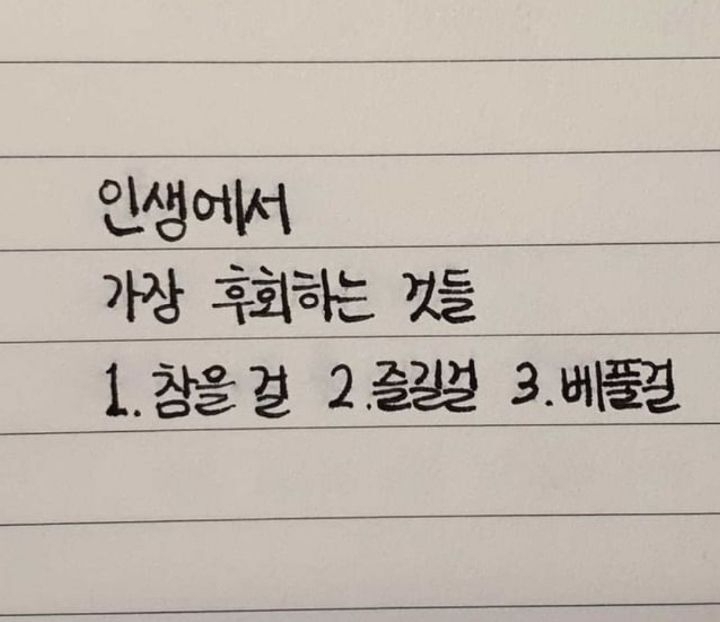 인생에서
가장 후회하는 것들
1. 참을 걸 2. 즐길걸 3. 베풀걸